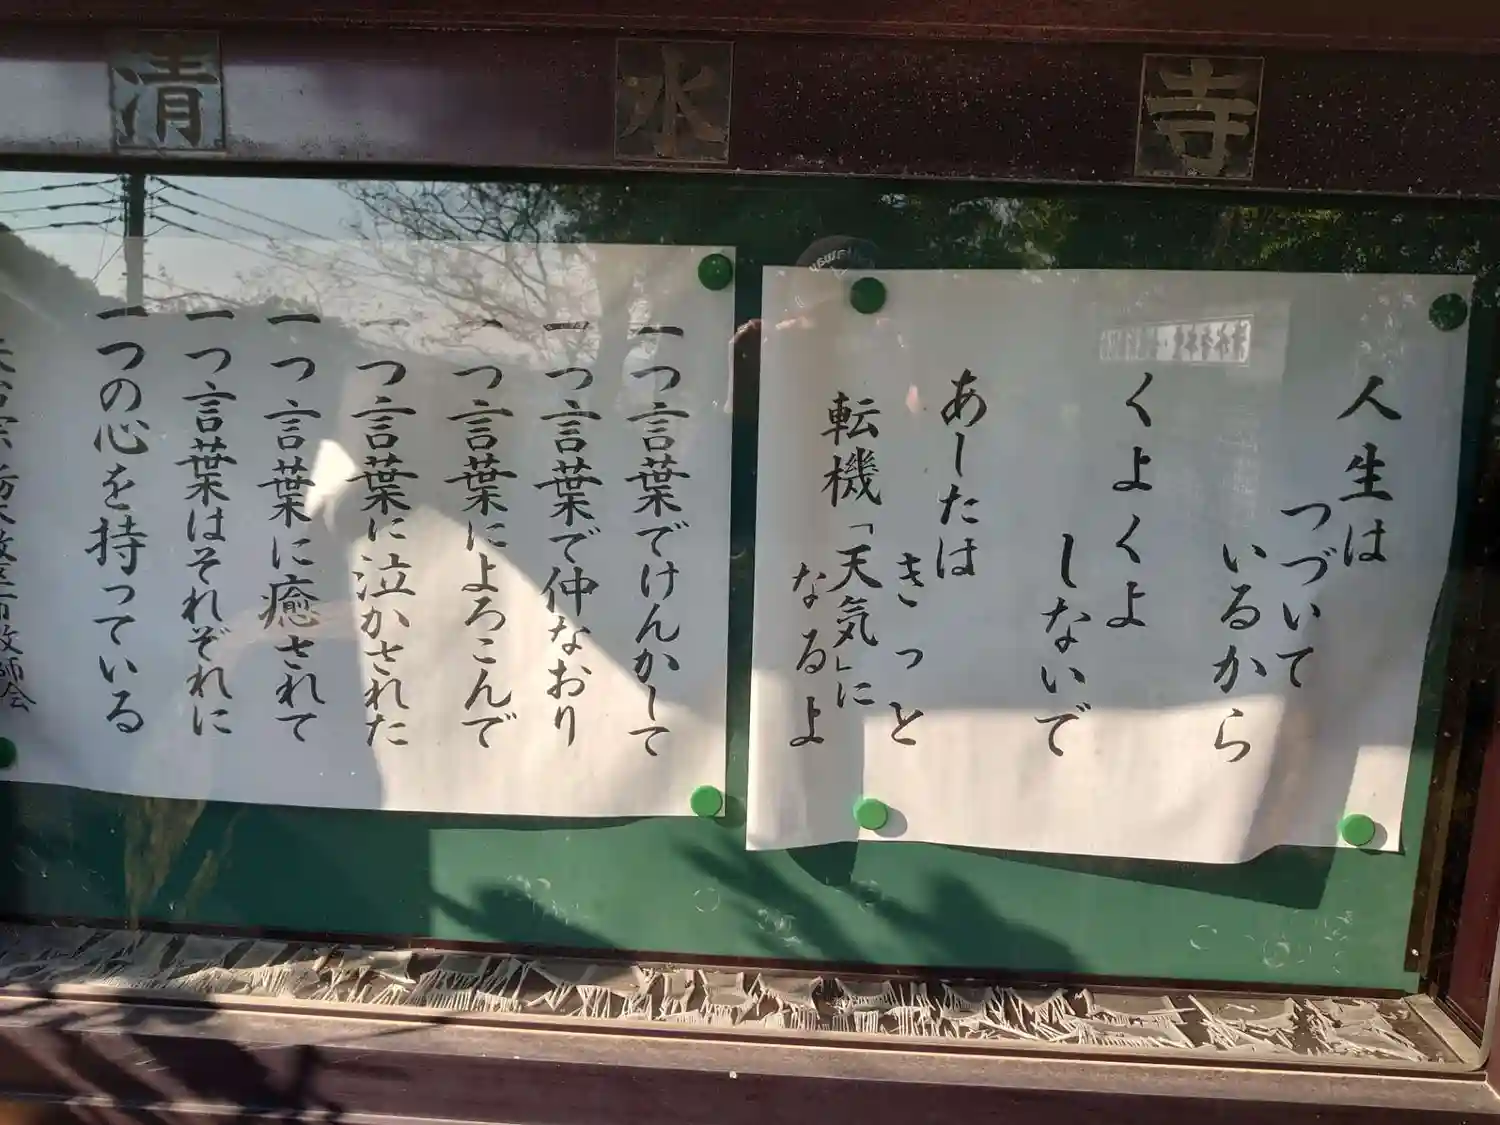 清水寺
人生は
つづいて
いるから
くよくよ
しないで
あしたは
きっと
転機「天気」に
なるよ
一つ言葉でけんかして
一つ言葉で仲なおり
一つ言葉によろこんで
一つ言葉に泣かされた
一つ言葉に癒されて
一つ言葉はそれぞれに
一つの心を持っている